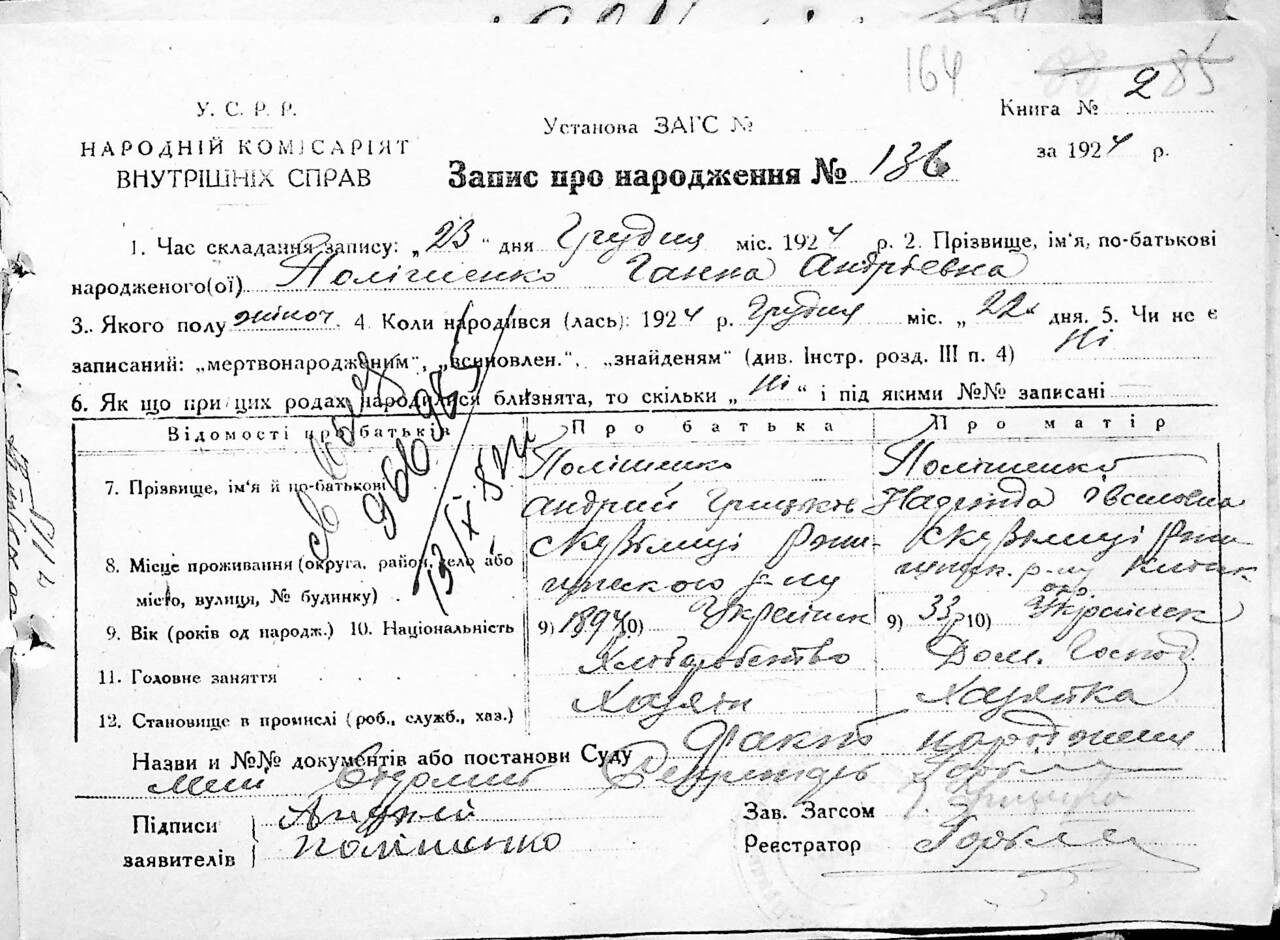 164 88 85
У. С. Р. Р.
НАРОДНІЙ КОМІСАРІЯТ
ВНУТРІШНІХ СПРАВ
Установа ЗАГС №
Книга № 2
за 1924 р.
Запис про народження № 136
1. Час складання запису: „23" дня Грудня міс. 1924 р. 2. Прізвище, ім'я, по-батькові
народженого(ої) Полішенко Ганна Андріевна
3. Якого полу жіноч. 4. Коли народився (лась): 1924 р. Грудня міс. „22" дня. 5. Чи не є
записаний: „мертвонародженим", „всиновлен.", „знайденям" (див. Інстр. розд. III п. 4) Ні
6. Як що при цих родах народилися близнята, то скільки „Ні" і під якими №№ записані
Відомості про батьків Про батька Про матір
7. Прізвище, ім'я й по-батькові
Полішенко Полішенко
Андрий Надежда
8. Місце проживання (округа, район, село або
місто, вулиця, № будинку)
9. Вік (років од народж.) 10. Національність 9) 1894 10) Українец 9) 33 р 10) Українек
11. Головне заняття Хлеборобство Дом. Господ.
12. Становище в промислі (роб., служб., хаз.) Хазяін Хазяйка
Назви и №№ документів або постанови Суду Факт народження
Підписи
заявителів
Андрій
Полішенко
Зав. Загсом
Реєстратор